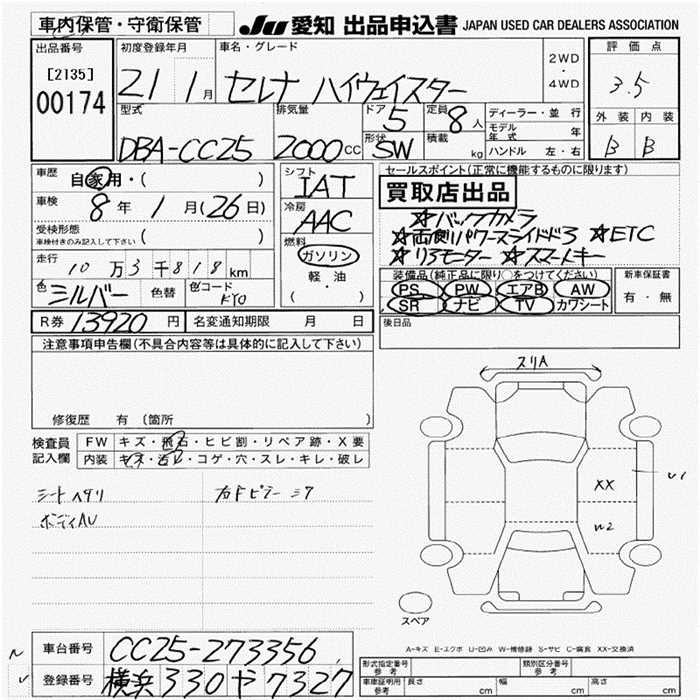 車内保管・守衛保管
JU 愛知 出品申込書 JAPAN USED CAR DEALERS ASSOCIATION
出品番号
[2135]
00174
初度登録年月
21 1月
車名・グレード
セレナ ハイウェイスター
2WD
・
4WD
評価点
3.5
外装 内装
B B
型式
DBA-CC25
排気量
2000cc
ドア
5
形状
SW
定員
8人
積載
kg
ディーラー・並行
モデル年式 年
ハンドル 左・右
車歴
自家用・( )
車検
8年 1月(26日)
受検形態
車検付きのみ記入して下さい ( )
走行
10万3千818km
色 シルバー 色替 色コード KY0
シフト
IAT
冷房
AAC
燃料
ガソリン
軽・油
( )
セールスポイント(正常に機能するものに限ります)
買取店出品
☆バックカメラ
☆両側パワースライドドア ☆ETC
☆リアモーター ☆スマートキー
装備品(純正品に限り○をつけてください)
PS PW エアB AW
SR ナビ TV カワシート
新車保証書
有・無
R券 13920円 名変通知期限 月 日
後日品
注意事項申告欄(不具合内容等は具体的に記入して下さい)
修復歴 有〔箇所 〕
検査員記入欄
FW キズ・飛石・ヒビ割・リペア跡・X要
内装 キズ・汚れ・コゲ・穴・スレ・キレ・破レ
シートヘタリ
ボディAU
右Fピラーミク
スリA
U1
XX
W2
スペア
A-キズ E-エクボ U-凹み W-補修跡 S-サビ C-腐食 XX-交換済
車台番号 CC25-273356
登録番号 横浜 330 や 7327
形式指定番号 参考
類別区分番号 参考
車庫証明用参考 長さ cm 幅 cm 高さ cm